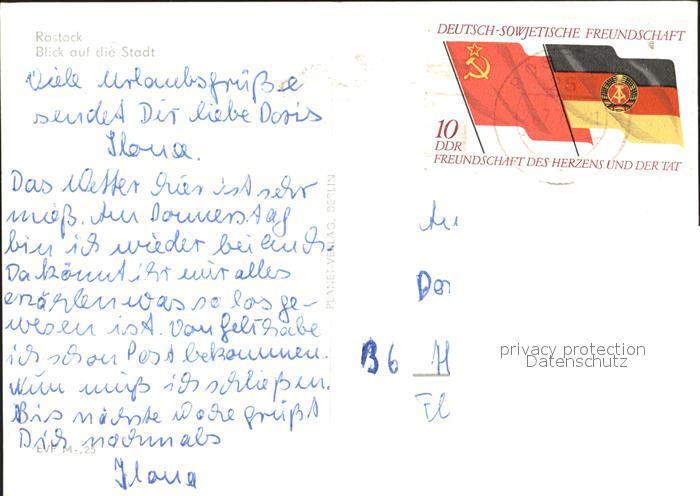 Rostock
Blick auf die Stadt
Viele Urlaubsgrüße
sendet Dir liebe Doris
Ilona.
Das Wetter hier ist sehr
mäß. Am Donnerstag
bin ich wieder bei euch.
Da könnt ihr mir alles
erzählen was so los ge-
wesen ist. Von
ich schon Post bekommen.
Nun muß ich schließen.
Bis nächste Woche grüßt
Dich nochmals
Ilona
EVP M -,25
PLANET-VERLAG, BERLIN
DEUTSCH-SOWJETISCHE FREUNDSCHAFT
10
DDR
FREUNDSCHAFT DES HERZENS UND DER TAT
An
Dor
B 6 H
El
privacy protection
Datenschutz